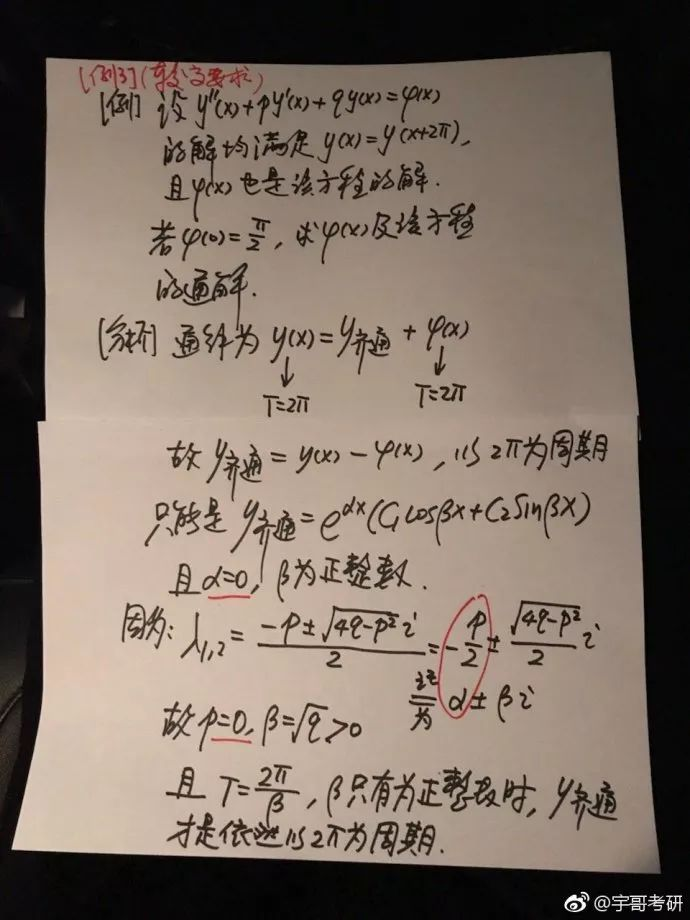 [例3](较高要求)
[例] 设 y''(x)+py'(x)+qy(x)=φ(x)
的解均满足 y(x)=y(x+2π),
且φ(x)也是该方程的解.
若φ(0)=π/2, 求φ(x)及该方程
的通解.
[分析] 通解为 y(x)=y齐通+φ(x)
↓ ↓
T=2π T=2π
故 y齐通=y(x)-φ(x), 以2π为周期
只能是 y齐通=e^{αx}(C₁cosβx+C₂sinβx)
且α=0, β为正整数.
因为: λ₁,₂=(-p±√(4q-p²) i)/2=-p/2±(√(4q-p²)/2) i
记为 α±βi
故p=0, β=√q>0
且 T=2π/β, β只有为正整数时, y齐通
才是依然以2π为周期.
@宇哥考研